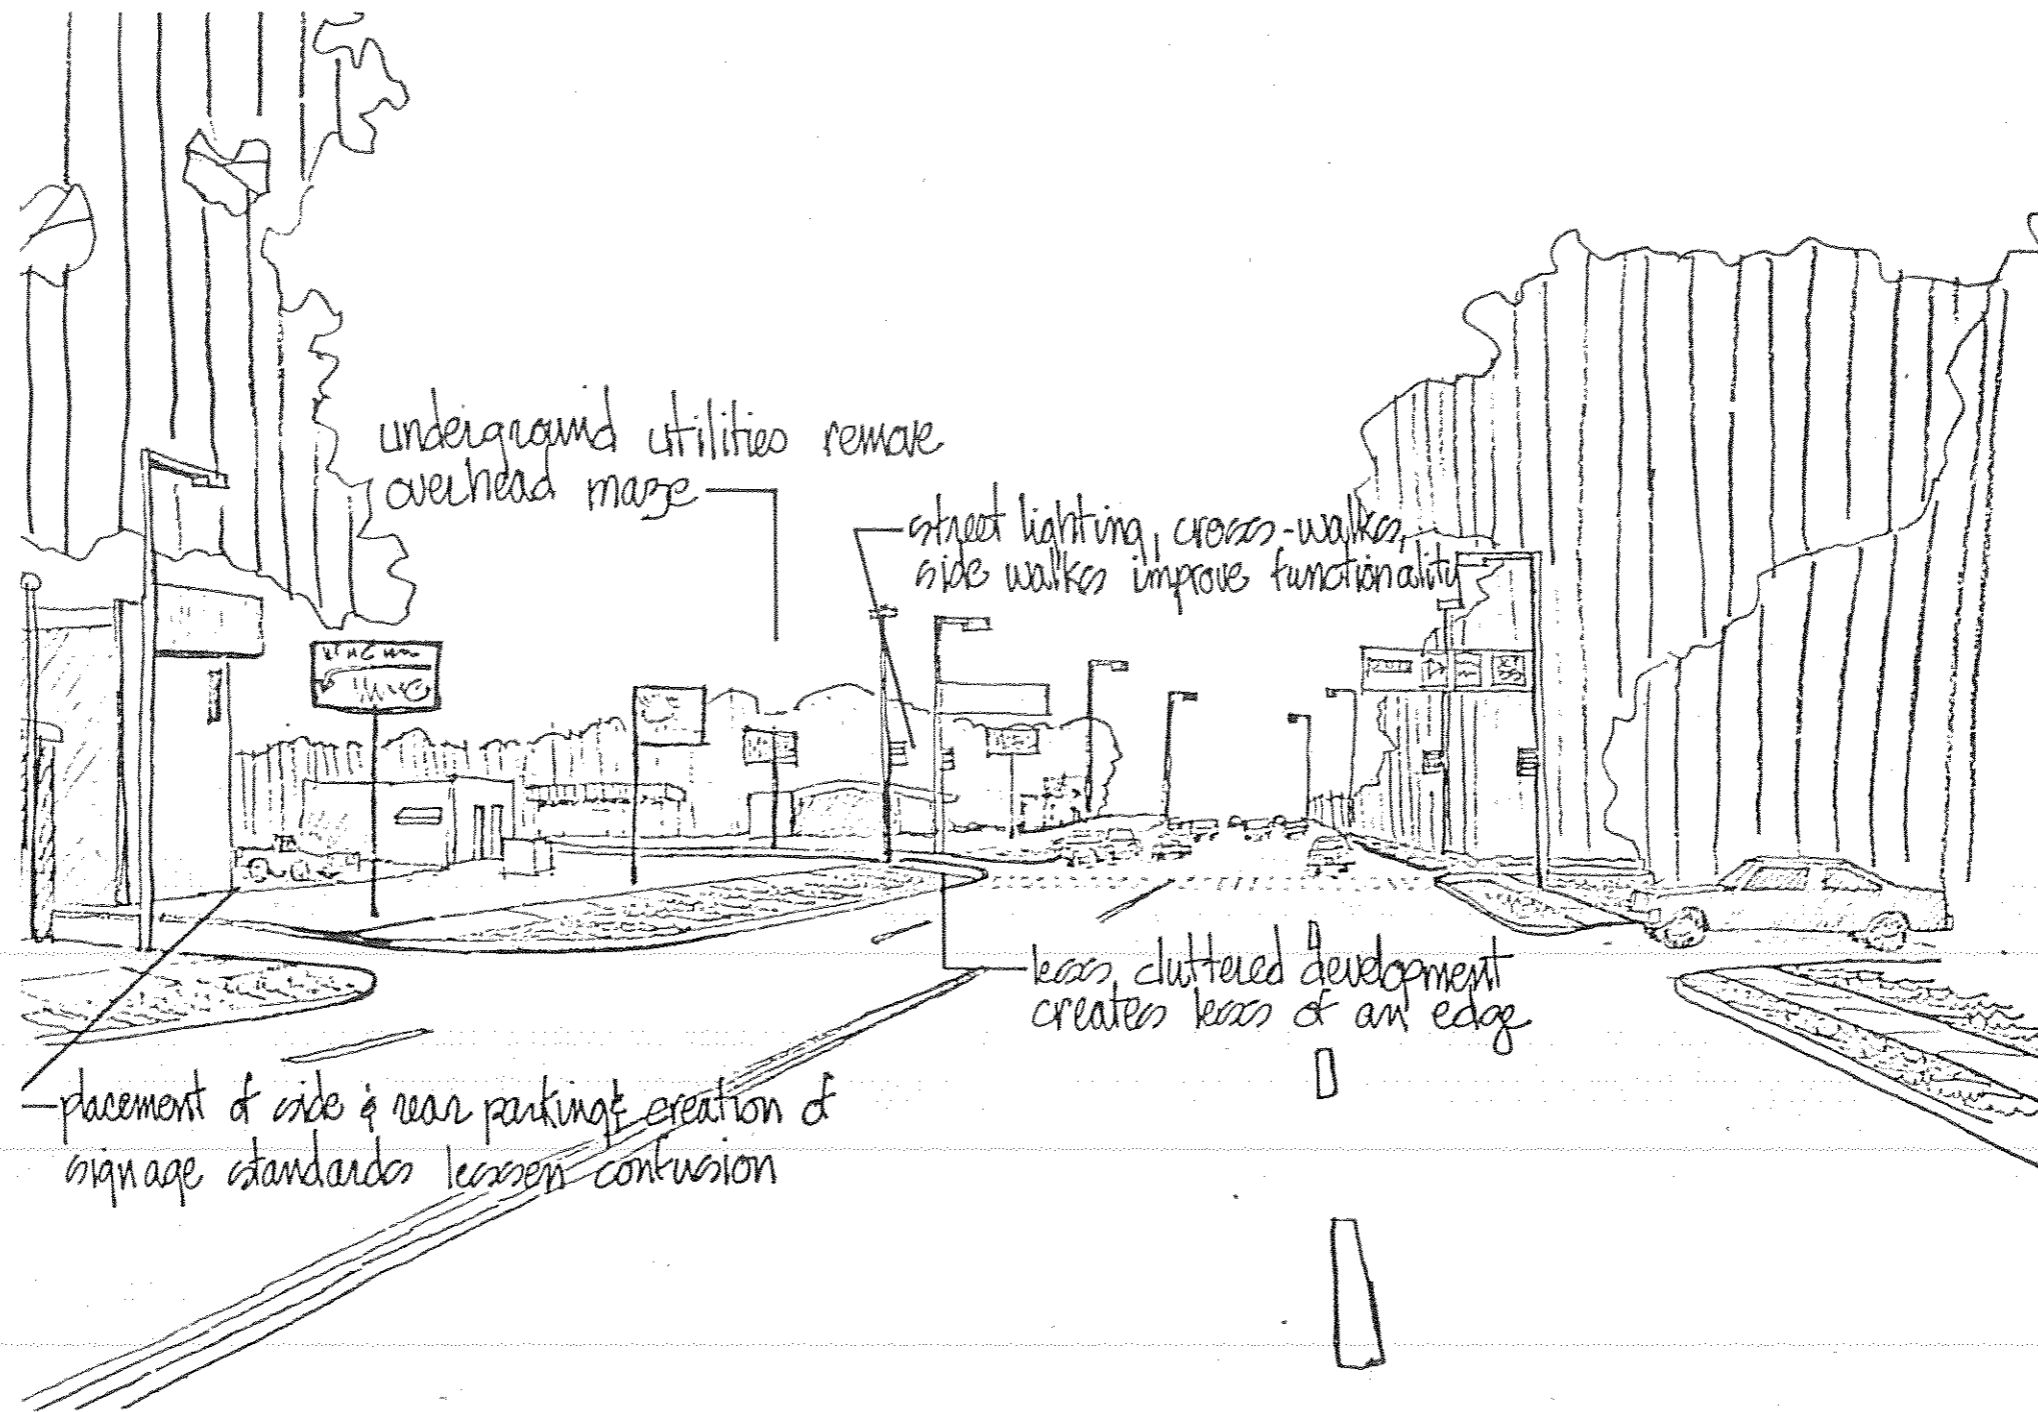 underground utilities remove
overhead maze
street lighting, cross-walks,
side walks improve functionality
less cluttered development
creates less of an edge
placement of side & rear parking & creation of
signage standards lessen confusion